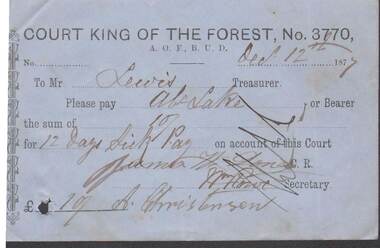 COURT KING OF THE FOREST, No. 3770,
A. O. F., B. U. D.
No. Dec 12th 1877
To Mr Lewis Treasurer.
Please pay Ab Lake or Bearer
the sum of 19/
for 12 Days Sick Pay on account of this Court
James C. R.
Wm Rowe Secretary
£ 19 A. Christensen